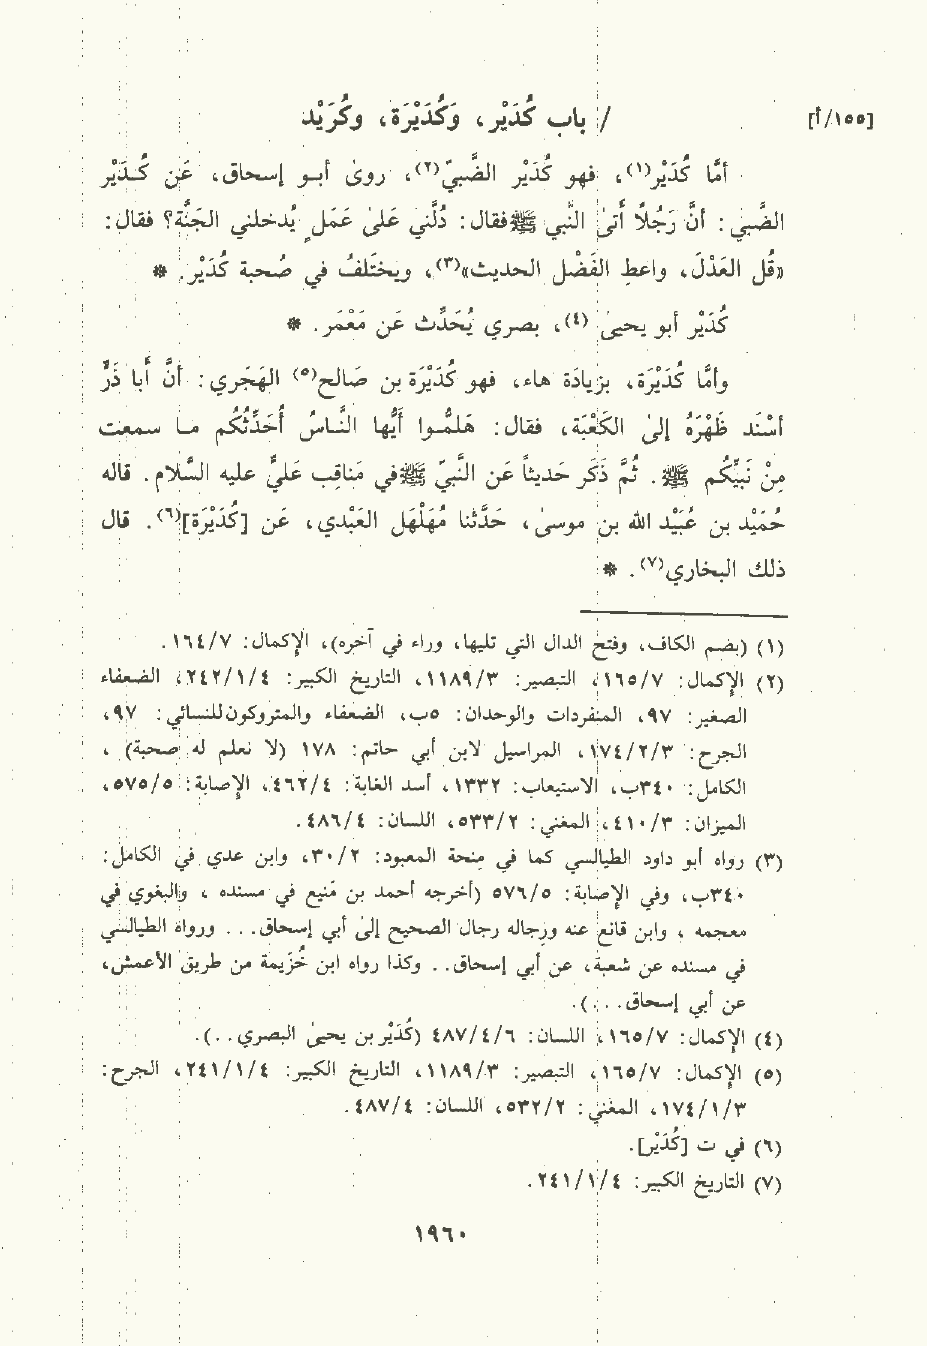 [١٥٥/أ] / باب كُدَيْر، وَكُدَيْرَة، وكُرَيْد
أمَّا كُدَيْر(١)، فهو كُدَيْر الضَّبيّ(٢)، روىٰ أبو إسحاق، عَن كُـدَيْر
الضَّبي: أنَّ رَجُلاً أَتىٰ النَّبي ﷺ فقال: دُلَّني علىٰ عَمَلٍ يُدخلني الجَنَّة؟ فقال:
«قُل العَدْلَ، واعطِ الفَضْل الحديث»(٣)، ويختَلفُ في صُحبة كُدَيْر. *
كُدَيْر أبو يحيىٰ (٤)، بصري يُحَدِّث عَن مَعْمَر. *
وأمَّا كُدَيْرَة، بزيادَة هاء، فهو كُدَيْرَة بن صَالح(٥) الهَجَري: أنَّ أبا ذَرٍّ
أسْنَد ظَهْرَهُ إلىٰ الكَعْبَة، فقال: هَلمُّـوا أَيُّها النَّـاسُ أُحَدِّثُكُم مَـا سمعت
مِنْ نَبيِّكُم ﷺ. ثُمَّ ذَكَر حَديثاً عَن النَّبيّ ﷺ في مَناقِب عَليٍّ عليه السَّلام. قاله
حُمَيْد بن عُبَيْد الله بن موسىٰ، حَدَّثنا مُهَلْهَل العَبْدي، عَن [كُدَيْرَة](٦). قال
ذلك البخاري(٧). *
(١) (بضم الكاف، وفتح الدال التي تليها، وراء في آخره)، الإكمال: ١٦٤/٧.
(٢) الإكمال: ١٦٥/٧، التبصير: ١١٨٩/٣، التاريخ الكبير: ٢٤٢/١/٤، الضعفاء
الصغير: ٩٧، المنفردات والوحدان: ٥ب، الضعفاء والمتروكون للنسائي: ٩٧،
الجرح: ١٧٤/٢/٣، المراسيل لابن أبي حاتم: ١٧٨ (لا نعلم له صحبة) ،
الكامل: ٣٤٠ب، الاستيعاب: ١٣٣٢، أسد الغابة: ٤٦٢/٤، الإصابة: ٥٧٥/٥،
الميزان: ٤١٠/٣، المغني: ٥٣٣/٢، اللسان: ٤٨٦/٤.
(٣) رواه أبو داود الطيالسي كما في مِنحة المعبود: ٣٠/٢، وابن عدي في الكامل:
٣٤٠ب، وفي الإصابة: ٥٧٦/٥ (أخرجه أحمد بن مَنيع في مسنده ، والبغوي في
معجمه ، وابن قانع عنه ورجاله رجال الصحيح إلىٰ أبي إسحاق... ورواه الطيالسي
في مسنده عن شعبة، عن أبي إسحاق.. وكذا رواه ابن خُزيمة من طريق الأعمش،
عن أبي إسحاق...).
(٤) الإكمال: ١٦٥/٧، اللسان: ٤٨٧/٤/٦ (كُدَيْر بن يحيىٰ البصري..).
(٥) الإكمال: ١٦٥/٧، التبصير: ١١٨٩/٣، التاريخ الكبير: ٢٤١/١/٤، الجرح:
١٧٤/١/٣، المغني: ٥٣٢/٢، اللسان: ٤٨٧/٤.
(٦) في ت [كُدَيْر].
(٧) التاريخ الكبير: ٢٤١/١/٤.
١٩٦٠